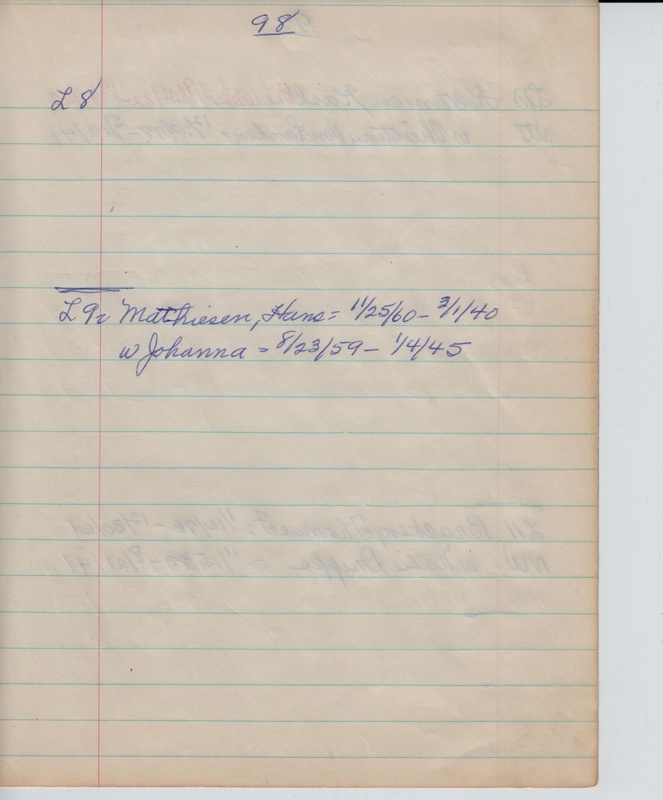 98
L 8
L 9 Mathiesen, Hans = 11/25/60 - 3/1/40
w Johanna = 8/23/59 - 1/4/45